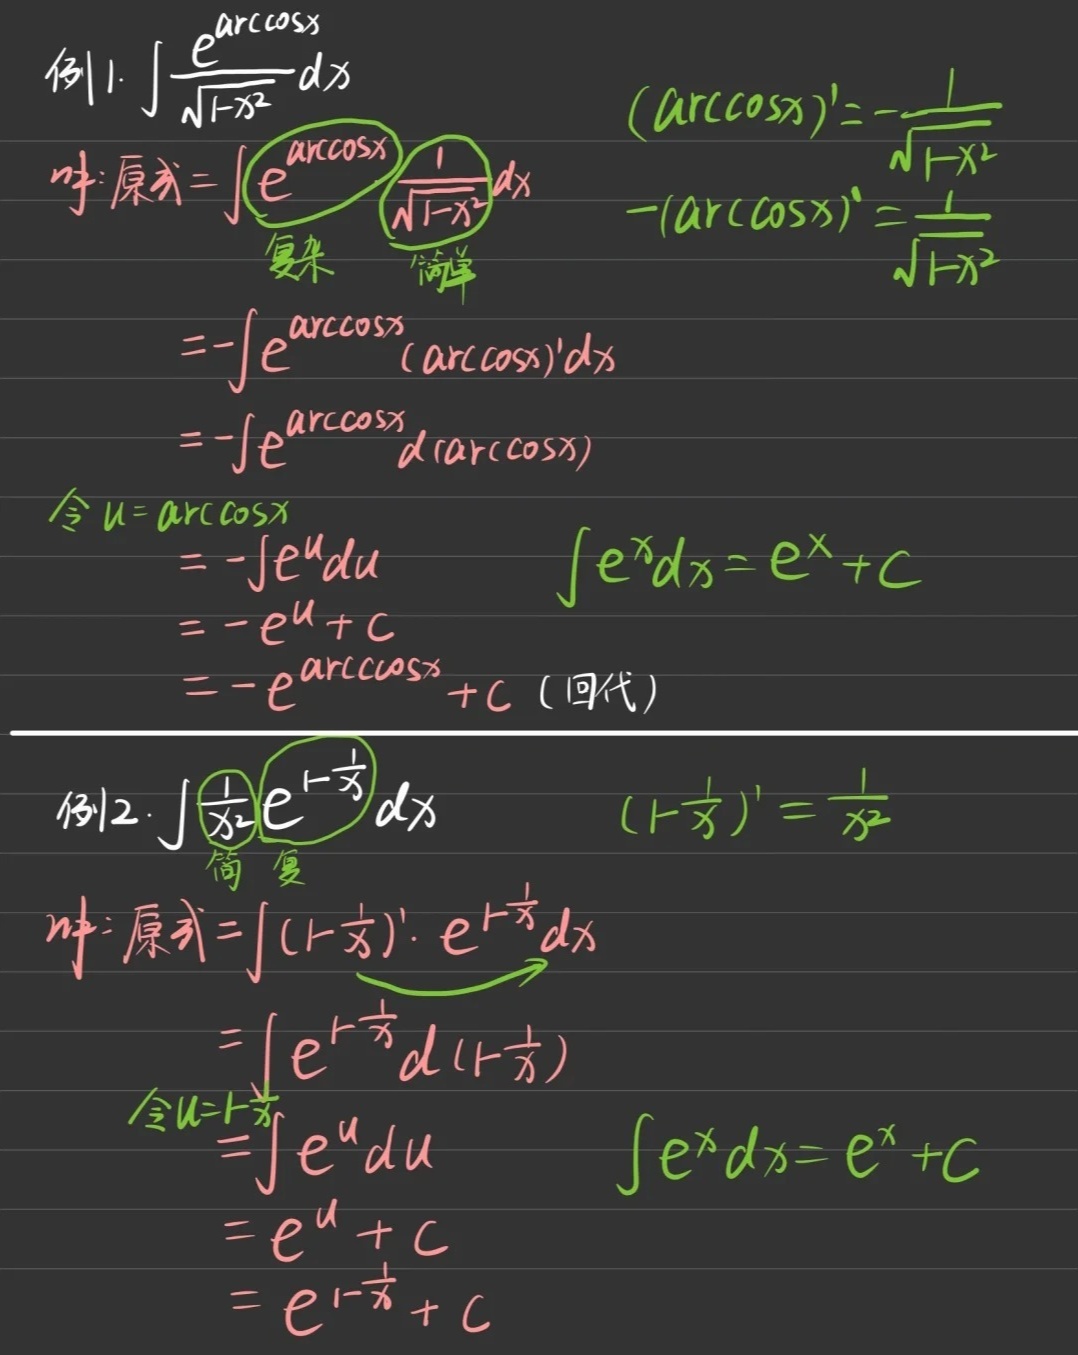 例1. ∫ e^{arccosx}/√(1-x²) dx
(arccosx)' = -1/√(1-x²)
解:原式 = ∫ e^{arccosx} 1/√(1-x²) dx
-(arccosx)' = 1/√(1-x²)
复杂 简单
= -∫ e^{arccosx} (arccosx)' dx
= -∫ e^{arccosx} d(arccosx)
令 u = arccosx
= -∫ e^u du
∫ e^x dx = e^x + C
= -e^u + C
= -e^{arcccosx} + C (回代)
例2. ∫ 1/x² e^{1-1/x} dx
(1-1/x)' = 1/x²
简 复
解:原式 = ∫ (1-1/x)' · e^{1-1/x} dx
= ∫ e^{1-1/x} d(1-1/x)
令 u = 1-1/x
= ∫ e^u du
∫ e^x dx = e^x + C
= e^u + C
= e^{1-1/x} + C